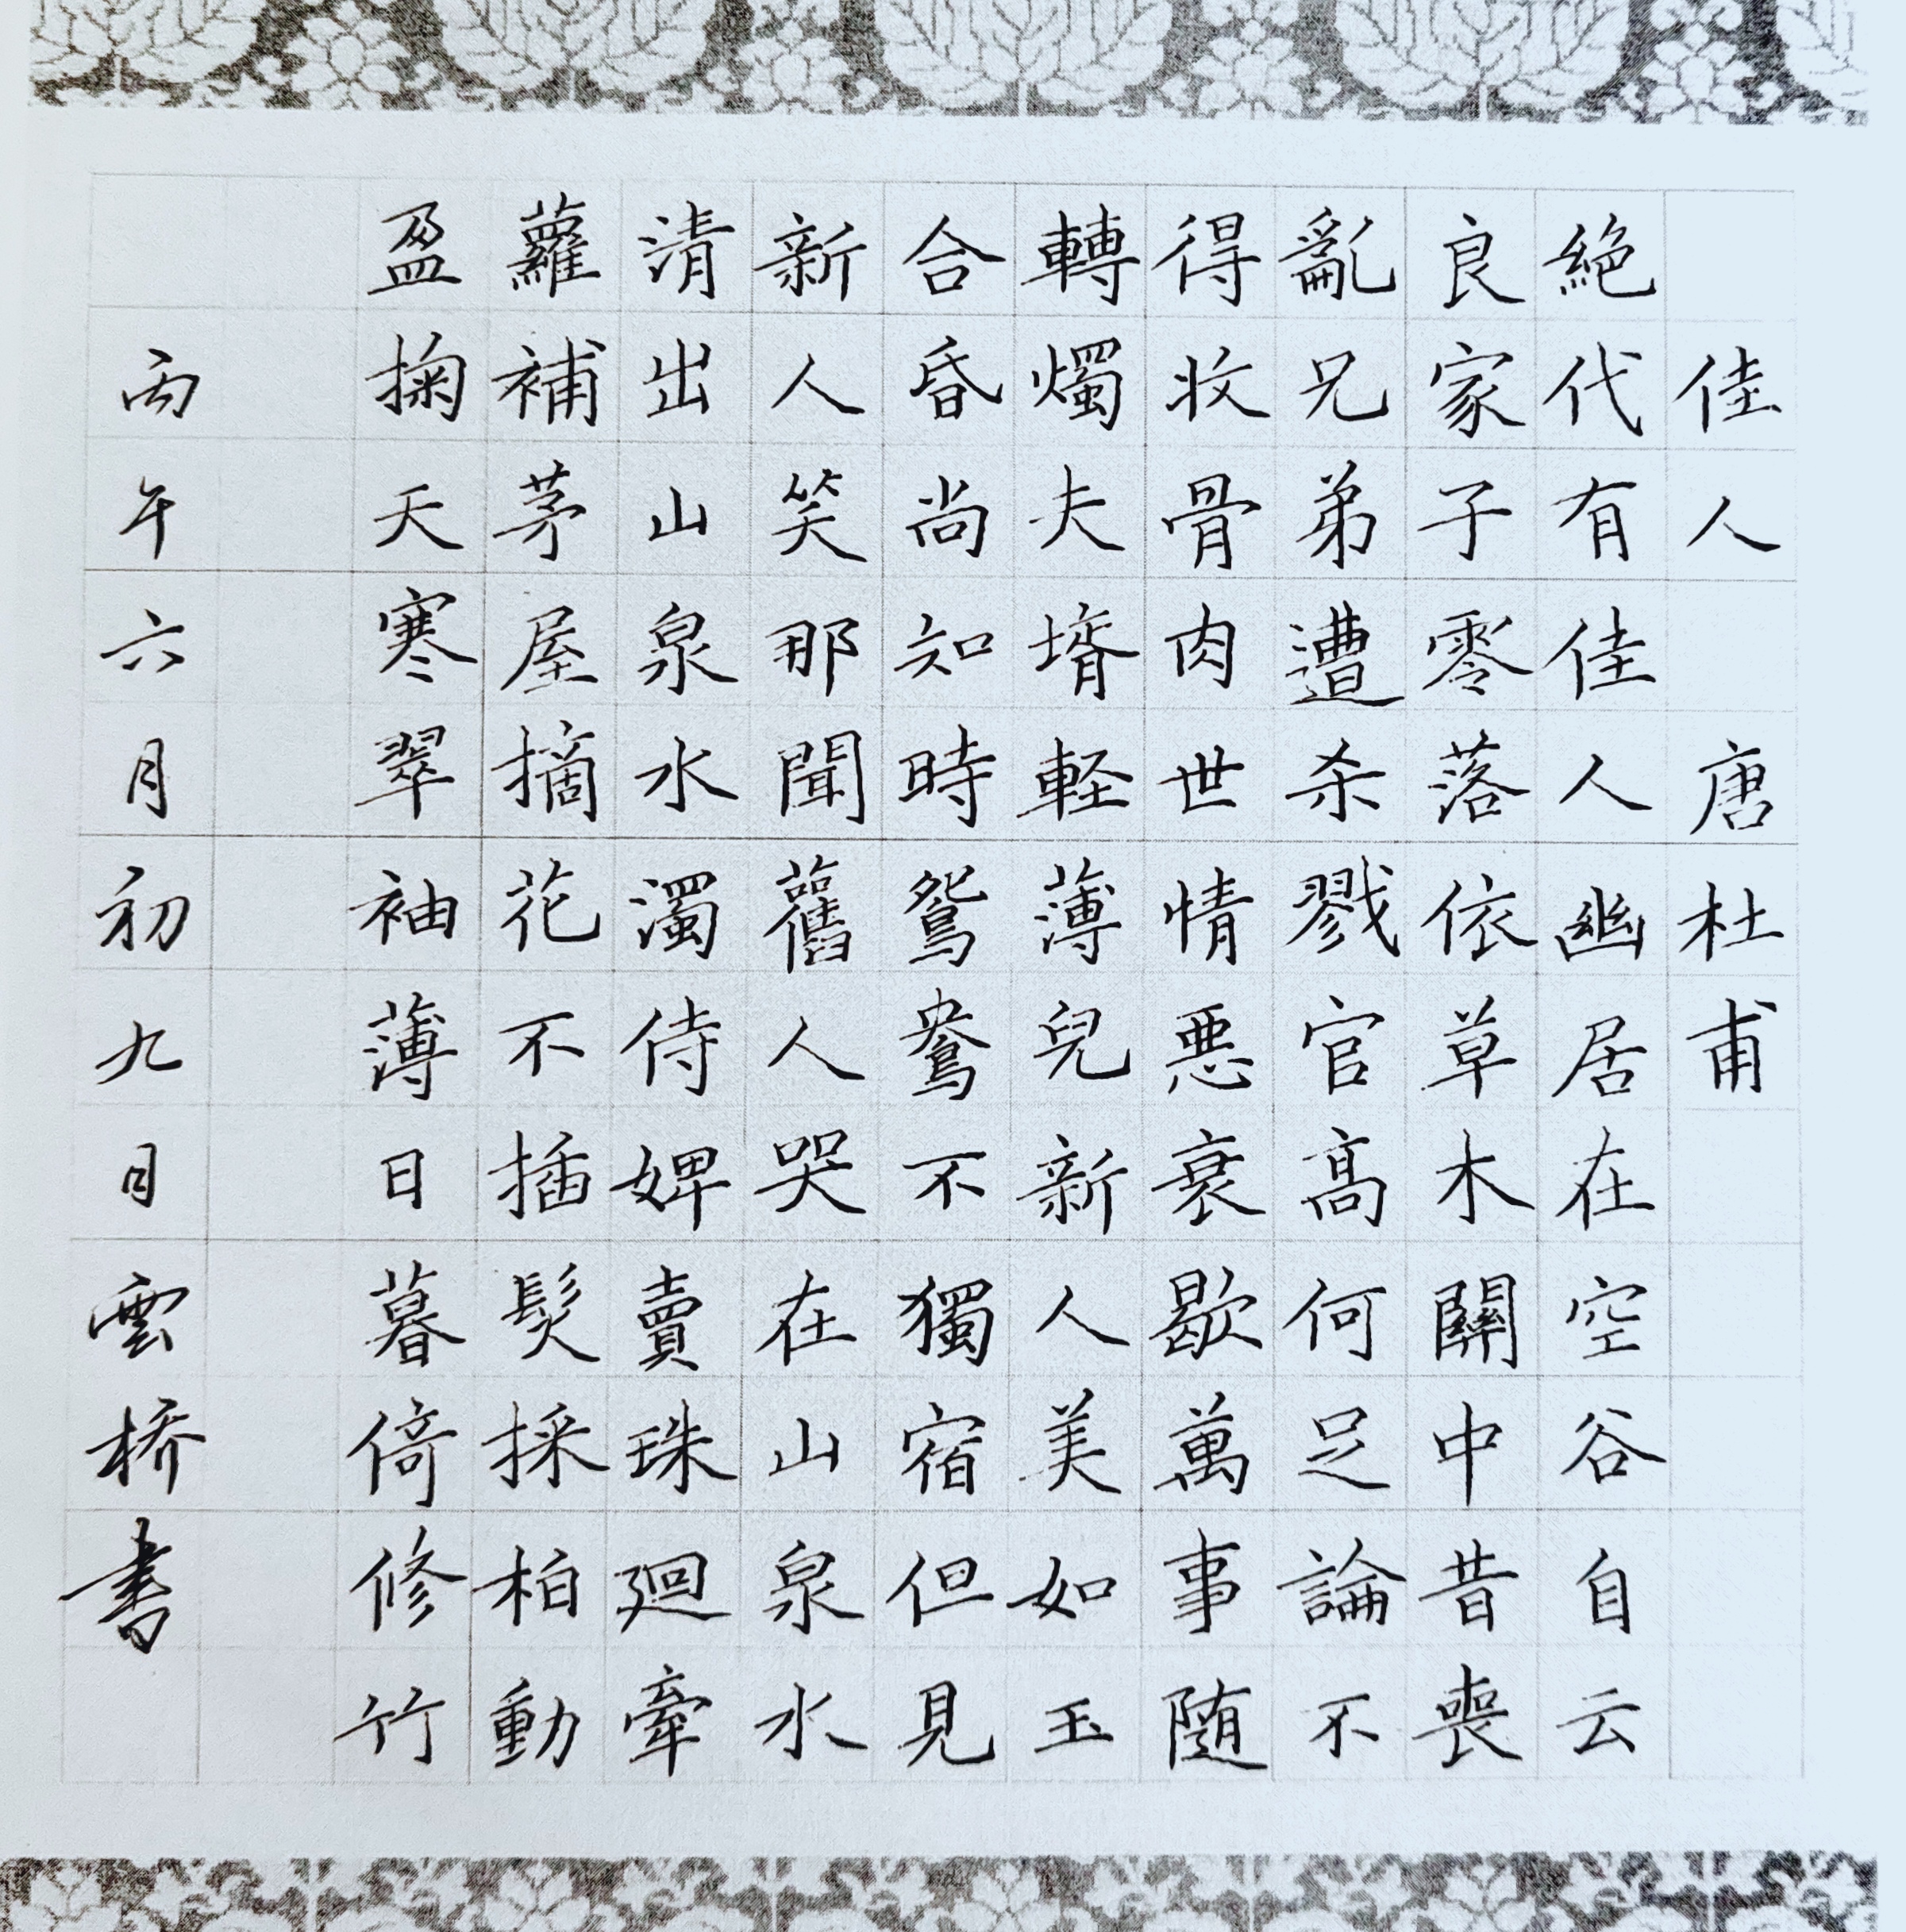 佳人 唐杜甫
絶代有佳人幽居在空谷自云
良家子零落依草木關中昔喪
亂兄弟遭杀戮官高何足論不
得收骨肉世情惡衰歇萬事随
轉燭夫壻軽薄兒新人美如玉
合昏尚知時鴛鴦不獨宿但見
新人笑那聞舊人哭在山泉水
清出山泉水濁侍婢賣珠廻牽
蘿補茅屋摘花不插髮採柏動
盈掬天寒翠袖薄日暮倚修竹
丙午六月初九日雲桥書